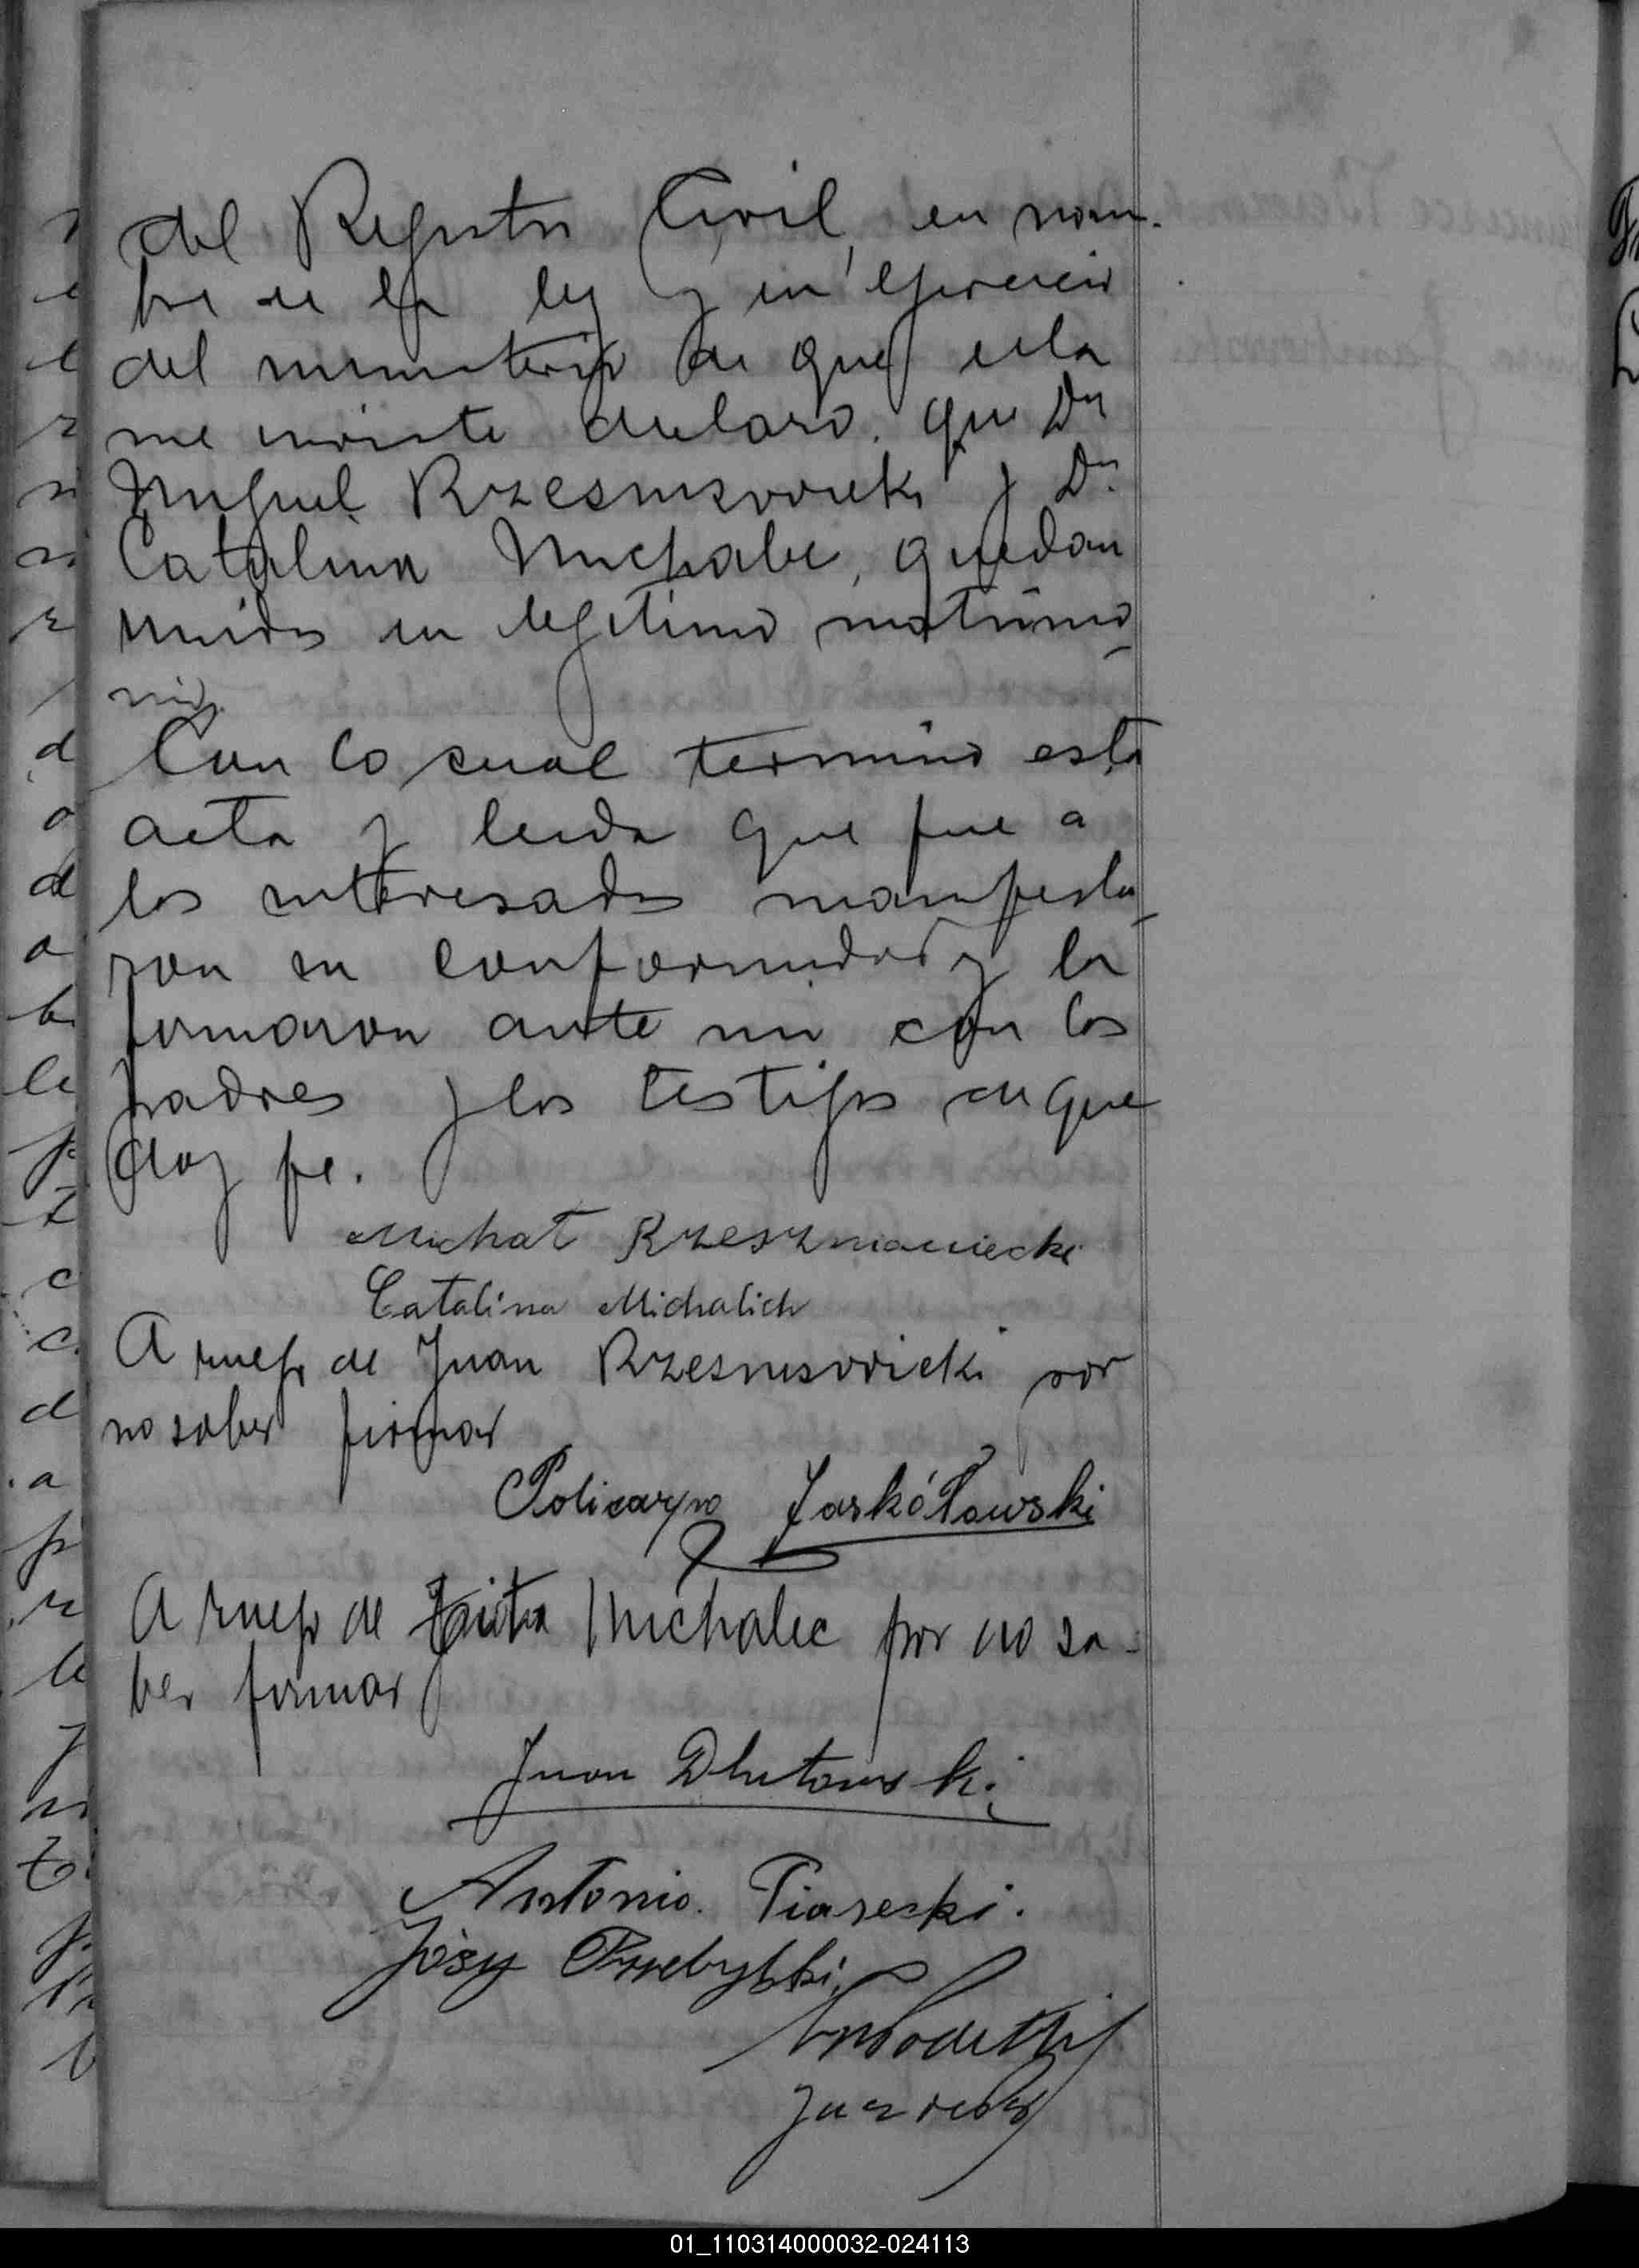 del Registro Civil, en nom-
bre de la ley y en ejercicio
del ministerio de que esta
me inviste declaro, que Dn
Miguel Rzesnisovvicki y Da
Catalina Michalec, quedan
unidos en legítimo matrimo-
nio.
Con lo cual terminó esta
acta y leida que fue a
los interesados manifesta-
ron su conformidad y la
firmaron ante mi con los
padres y los testigos de que
doy fe.
Michał Rzeszniowiecki
Catalina Michalich
A ruego de Juan Rzesnisovvicki por
no saber firmar
Policarpo Jaskółowski
A ruego de Michalec por no sa-
ber firmar
Juan Dlutowski
Antonio. Piasecki.
Juez de Paz
01_110314000032-024113